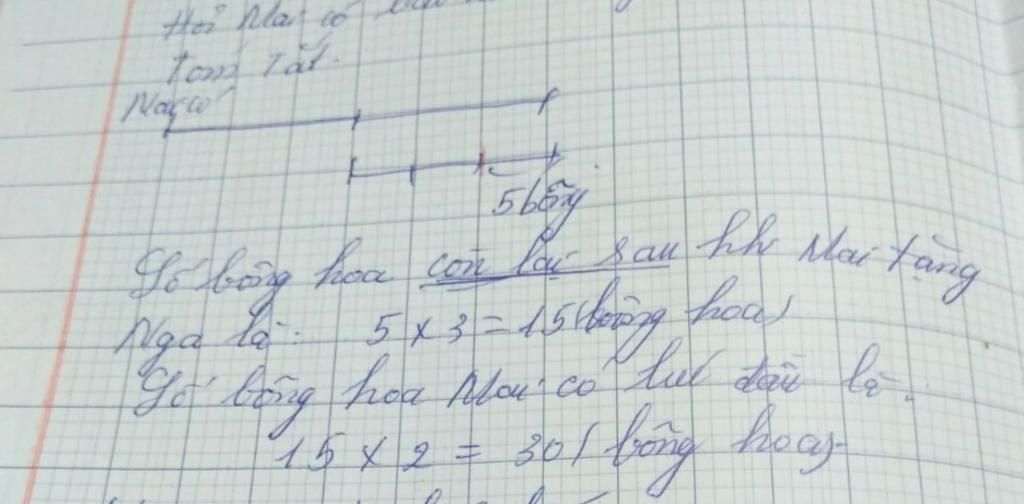 Hỏi Mai có
Tóm Tắt.
Mai có
5 bông
Số bông hoa còn lại sau khi Mai tặng
Nga là: 5 x 3 = 15 (bông hoa)
Số bông hoa Mai có lúc đầu là:
15 x 2 = 30 (bông hoa)